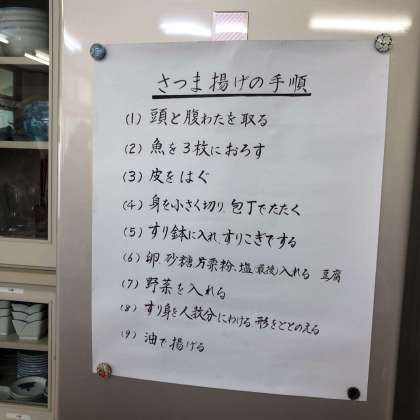 さつま揚げの手順
(1) 頭と腹わたを取る
(2) 魚を3枚におろす
(3) 皮をはぐ
(4) 身を小さく切り、包丁でたたく
(5) すり鉢に入れ、すりこぎでする
(6) 卵、砂糖、片栗粉、塩(最後)入れる 豆腐
(7) 野菜を入れる
(8) すり身を人数分にわける 形をととのえる
(9) 油で揚げる